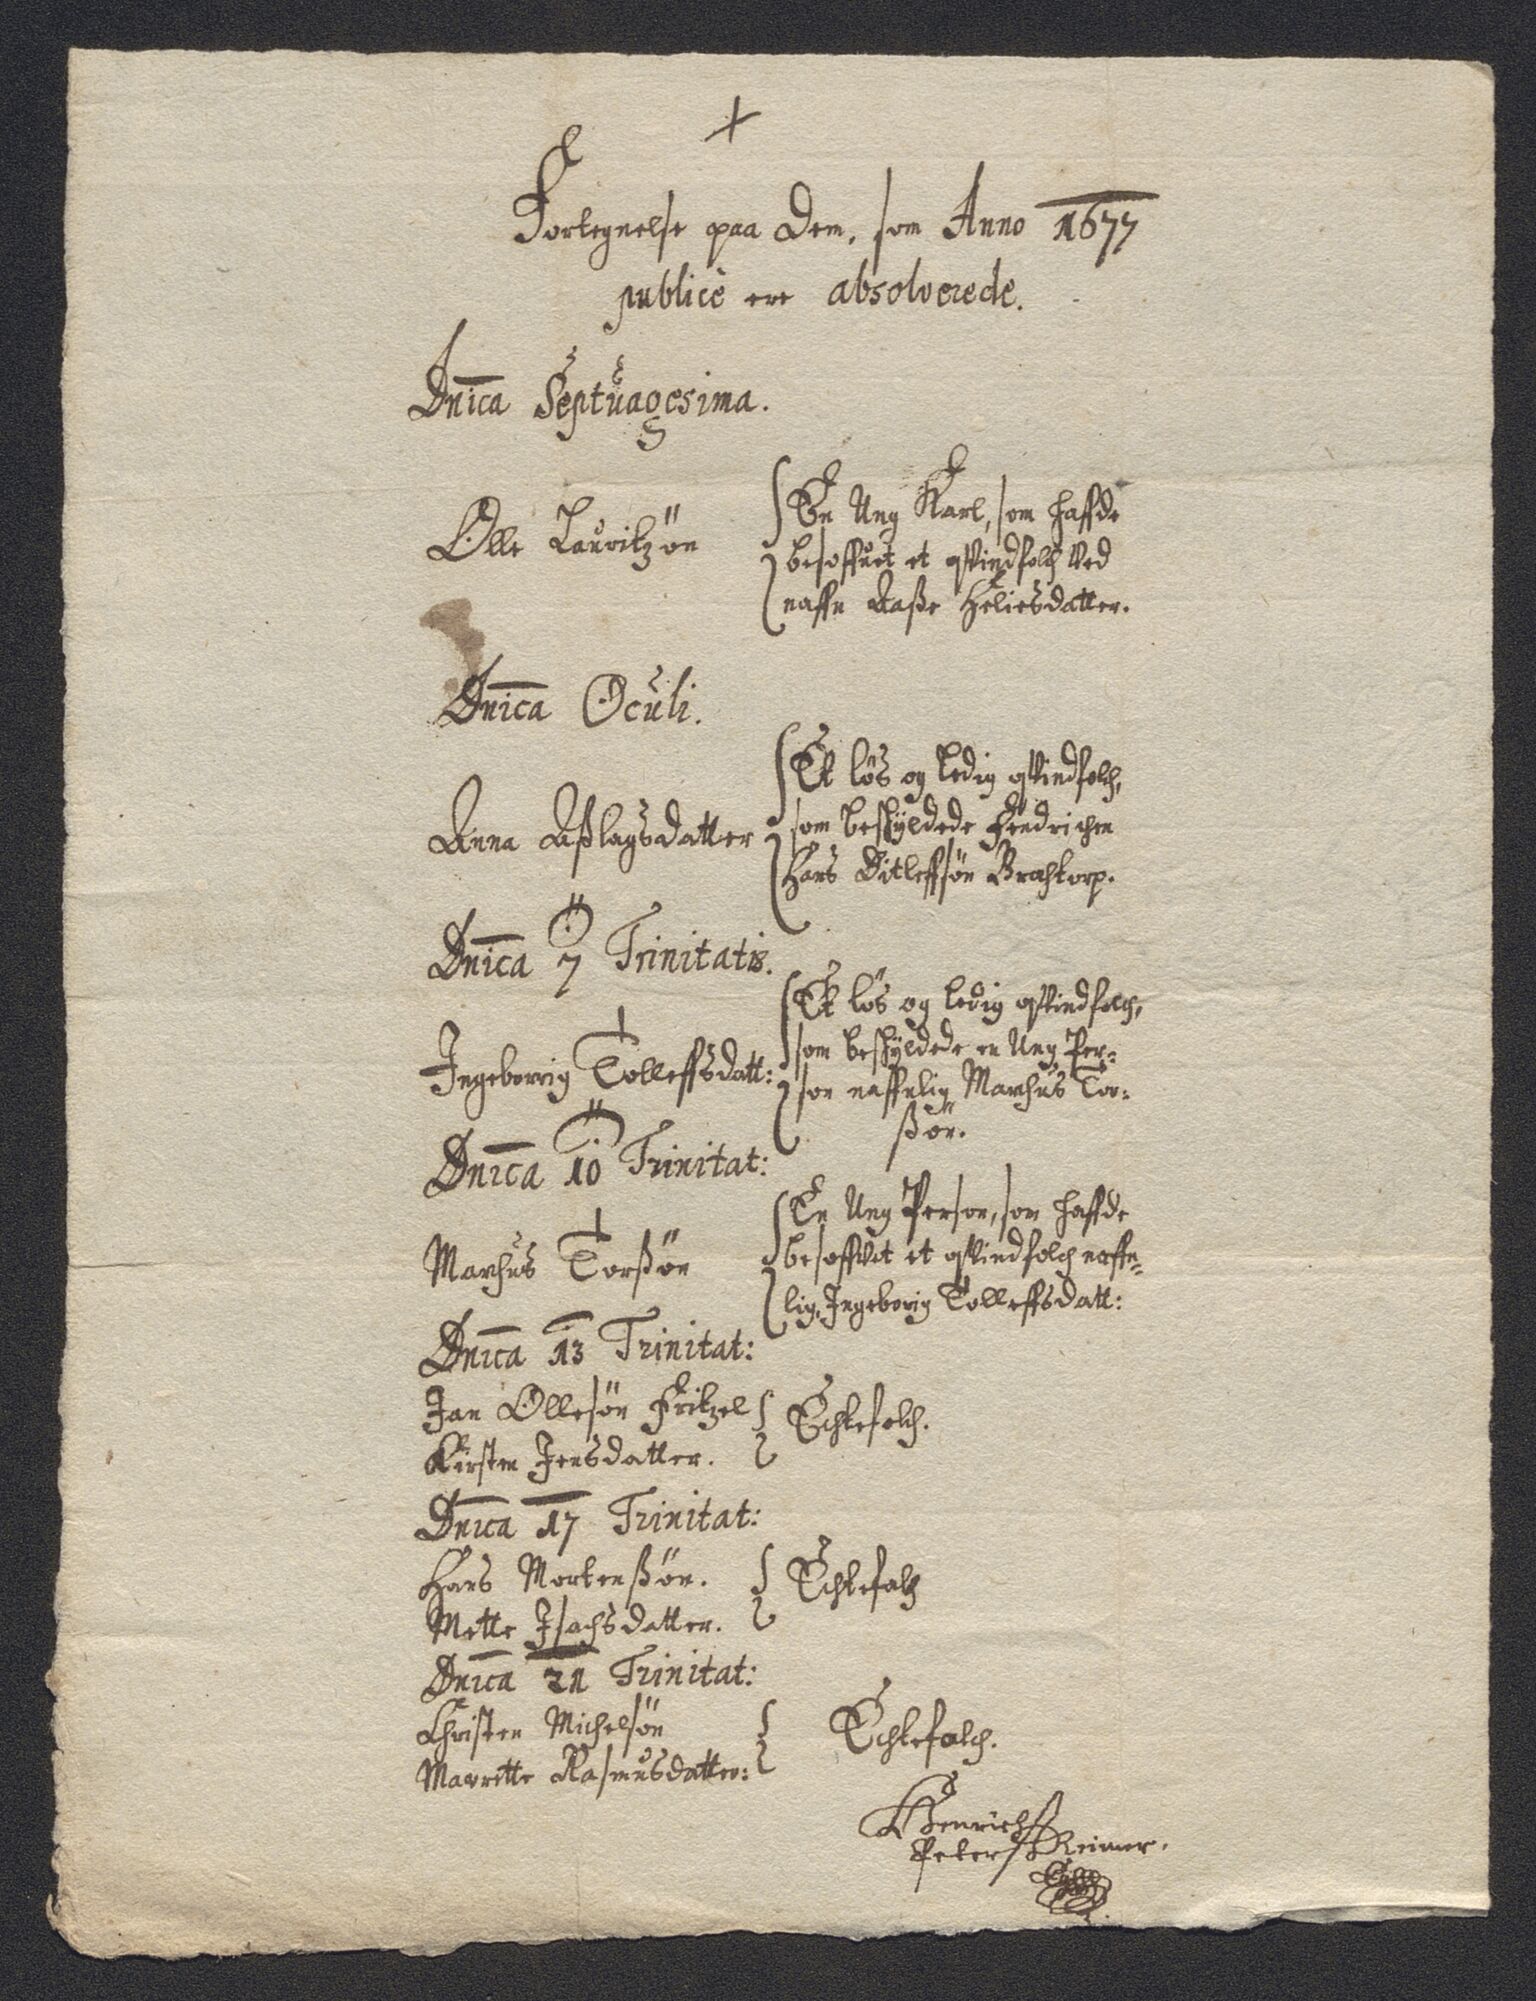 Fortegnelse paa Dem, som Anno 1677
publicè ere absolverede.
Dnica Septuagesima.
Olle Lauritzön
En Ung Karl, som haffde
besoffuet et qVindfolch Ved
naffn Aaße Heliesdatter.
Dnica Oculi.
Anna Aßlagsdatter
Et lös og ledig qVindfolch,
som beskyldede Fendrichen
Hans Ditleffsön Brochtorp.
Dnica 7 Trinitatis.
Ingeborrig Tolleffsdatt:
Et lös og ledig qVindfolch,
som beskyldede en Ung Per-
son naffnlig Marchus Tor-
ßön.
Dnica 10 Trinitat:
Marchus Torßön
En Ung Person, som haffde
besoffvet et qVindfolch naffn-
lig, Ingeborig Tolleffsdatt:
Dnica 13 Trinitat:
Jan Ollesön Fritzel
Kirsten Jensdatter.
Echtefolch.
Dnica 17 Trinitat:
Hans Mortenßön.
Mette Isachsdatter.
Echtefolch
Dnica 21 Trinitat:
Christen Michelsön
Marette Rasmusdatter:
Echtefolch.
Henrich
Peterß Reimer.